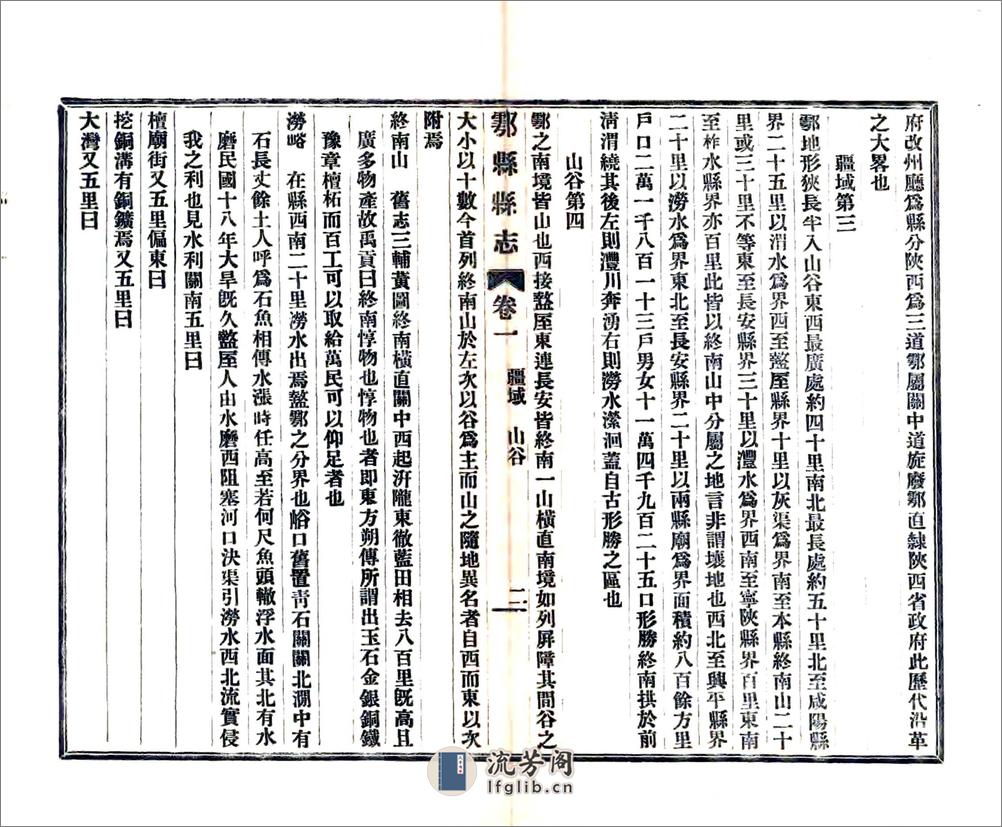 府改州廳爲縣分陝西爲三道鄠屬關中道旋廢鄠直隸陝西省政府此歷代沿革
之大畧也
疆域第三
鄠地形狹長半入山谷東西最廣處約四十里南北最長處約五十里北至咸陽縣
界二十五里以渭水爲界西至盩厔縣界十里以灰渠爲界南至本縣終南山二十
里或三十里不等東至長安縣界三十里以灃水爲界西南至寧陝縣界百里東南
至柞水縣界亦百里此皆以終南山中分屬之地言非謂壤地也西北至興平縣界
二十里以澇水爲界東北至長安縣界二十里以兩縣廟爲界面積約八百餘方里
戶口二萬一千八百一十三戶男女十一萬四千九百二十五口形勝終南拱於前
淸渭繞其後左則灃川奔湧右則澇水瀠洄蓋自古形勝之區也
山谷第四
鄠之南境皆山也西接盩厔東連長安皆終南一山橫直南境如列屏障其間谷之
鄠縣縣志 卷一 疆域 山谷 二
大小以十數今首列終南山於左次以谷爲主而山之隨地異名者自西而東以次
附焉
終南山 舊志三輔黃圖終南橫直關中西起汧隴東徹藍田相去八百里旣高且
廣多物產故禹貢曰終南惇物也惇物也者卽東方朔傳所謂出玉石金銀銅鐵
豫章檀柘而百工可以取給萬民可以仰足者也
澇峪 在縣西南二十里澇水出焉盩鄠之分界也峪口舊置靑石關關北澗中有
石長丈餘土人呼爲石魚相傳水漲時任高至若何尺魚頭轍浮水面其北有水
磨民國十八年大旱旣久盩厔人由水磨西阻塞河口決渠引澇水西北流實侵
我之利也見水利關南五里曰
檀廟街又五里偏東曰
挖銅溝有銅鑛焉又五里曰
大灣又五里曰
流芳阁
lfglib.cn